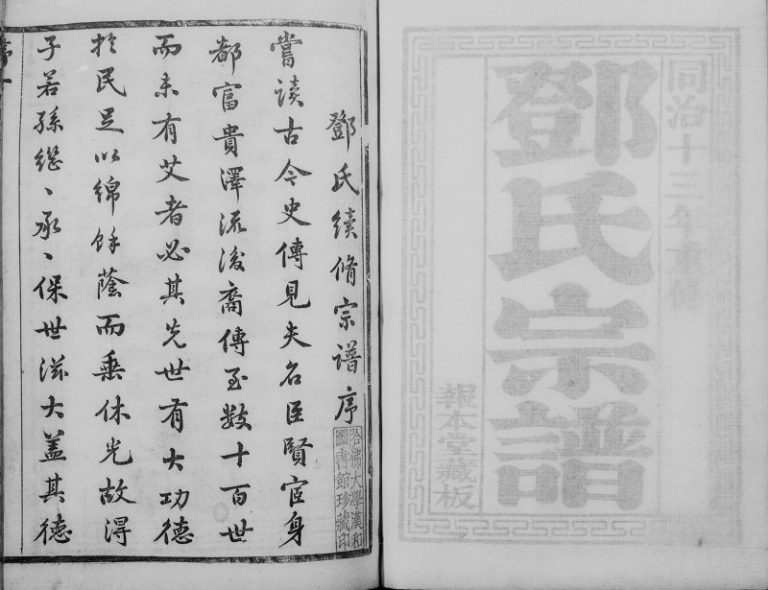 同治十三年重修
鄧氏宗譜
報本堂藏板
鄧氏續脩宗譜序
哈佛大學漢和
圖書館珍藏印
嘗讀古今史傳見夫名臣賢宦身
都富貴澤流後裔傳至數十百世
而未有艾者必其先世有大功德
於民足以綿餘蔭而垂休光故得
子若孫繼〻承〻保世滋大蓋其德